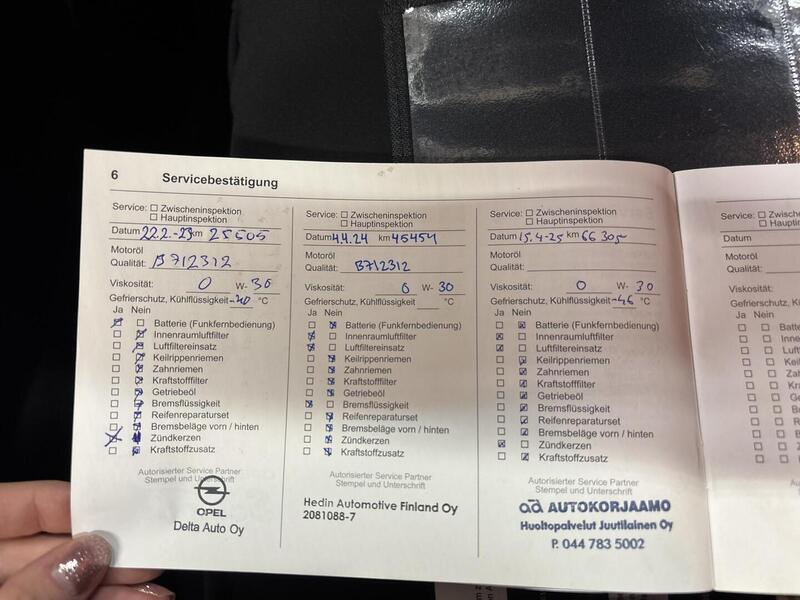 6 Servicebestätigung
Service: ☐ Zwischeninspektion
☐ Hauptinspektion
Datum 22.2.-23 km 25605
Motoröl
Qualität: B712312
Viskosität: 0 W- 30
Gefrierschutz, Kühlflüssigkeit -40 °C
Ja Nein
Batterie (Funkfernbedienung)
Innenraumluftfilter
Luftfiltereinsatz
Keilrippenriemen
Zahnriemen
Kraftstofffilter
Getriebeöl
Bremsflüssigkeit
Reifenreparaturset
Bremsbeläge vorn / hinten
Zündkerzen
Kraftstoffzusatz
Autorisierter Service Partner
Stempel und Unterschrift
OPEL
Delta Auto Oy
Service: ☐ Zwischeninspektion
☐ Hauptinspektion
Datum 4.4.24 km 45454
Motoröl
Qualität: B712312
Viskosität: 0 W- 30
Gefrierschutz, Kühlflüssigkeit °C
Ja Nein
Batterie (Funkfernbedienung)
Innenraumluftfilter
Luftfiltereinsatz
Keilrippenriemen
Zahnriemen
Kraftstofffilter
Getriebeöl
Bremsflüssigkeit
Reifenreparaturset
Bremsbeläge vorn / hinten
Zündkerzen
Kraftstoffzusatz
Autorisierter Service Partner
Stempel und Unterschrift
Hedin Automotive Finland Oy
2081088-7
Service: ☐ Zwischeninspektion
☐ Hauptinspektion
Datum 15.4-25 km 66 305
Motoröl
Qualität:
Viskosität: 0 W- 30
Gefrierschutz, Kühlflüssigkeit -46 °C
Ja Nein
Batterie (Funkfernbedienung)
Innenraumluftfilter
Luftfiltereinsatz
Keilrippenriemen
Zahnriemen
Kraftstofffilter
Getriebeöl
Bremsflüssigkeit
Reifenreparaturset
Bremsbeläge vorn / hinten
Zündkerzen
Kraftstoffzusatz
Autorisierter Service Partner
Stempel und Unterschrift
ad AUTOKORJAAMO
Huoltopalvelut Juutilainen Oy
P. 044 783 5002
Service: ☐ Zwischen
☐ Hauptins
Datum
Motoröl
Qualität:
Viskosität:
Gefrierschutz, Kü
Ja Nein
Batterie
Innen
Luft
Keil
Zah
Kra
Ge
Br